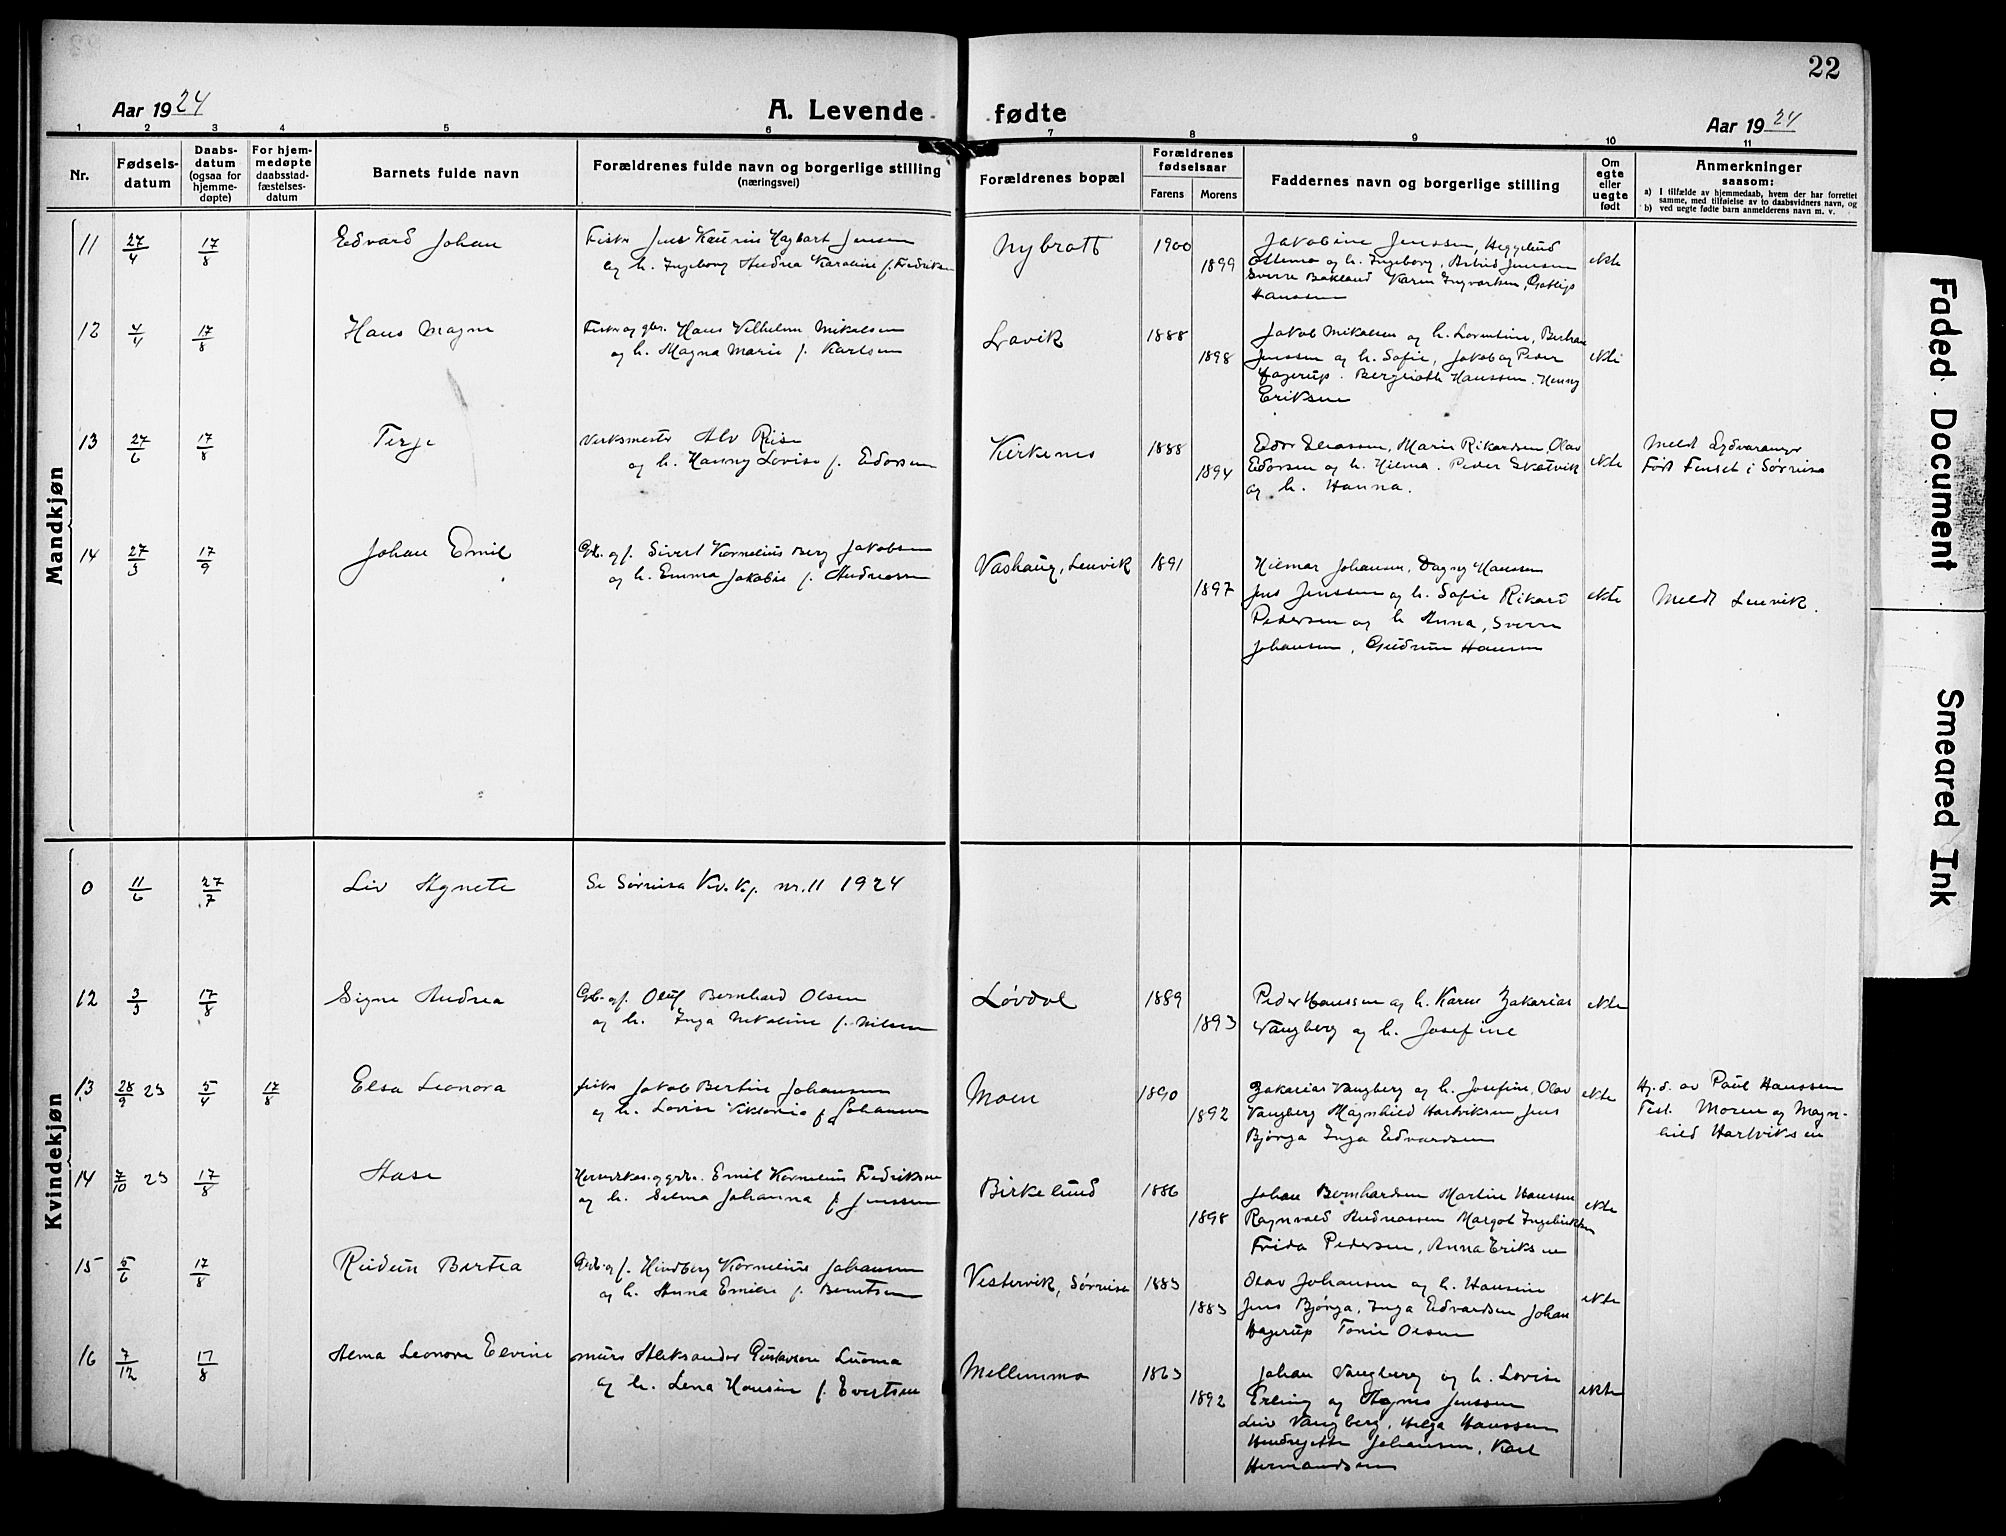 22
Aar 1924
A. Levende fødte
Aar 1924
1 2 3 4 5 6 7 8 9 10 11
Nr.
Fødselsdatum
Daabsdatum (ogsaa for hjemmedøpte)
For hjemmedøpte daabsstadfæstelsesdatum
Barnets fulde navn
Forældrenes fulde navn og borgerlige stilling
(næringsvei)
Forældrenes bopæl
Forældrenes fødselsaar
Farens Morens
Faddernes navn og borgerlige stilling
Om egte eller uegte født
Anmerkninger
sansom:
a) I tilfælde av hjemmedaab, hvem der har forrettet samme, med tilføielse av to daabsvidners navn, og
b) ved uegte fødte barn anmelderens navn m. v.
Mandkjøn
11 27/4 17/8 Edvard Johan
Fisker Jens Kaurin Hagbart Jensen
og h. Ingeborg Andrea Karoline f. Fredriksen
Nybrott 1900 1899
Jakobine Jenssen, Heggelund
og h. Ingeborg, Astrid Jenssen
Sverre Bakland Karen Ingvartsen,
Hanssen
ekte
12 4/4 17/8 Hans Magne
Fisker og gbr. Hans Vilhelm Mikalsen
og h. Magna Marie f. Karlsen
Lavik 1888 1898
Jakob Mikalsen og h. Lorentine, Berhan
Jenssen og h. Sofie, Jakob og Peder
Hagerup. Bergliot Hanssen. Henny
Eriksen
ekte
13 27/6 17/8 Terje
Verksmester Alv Riise
og h. Hanny Lovise f. Edorsen
Kirkenes 1888 1894
Edor Eliassen, Marie Rikardsen, Olav
Edorsen og h. Hilma. Peder Skatvik
og h. Hanna.
ekte
Meldt Sydvaranger
Født Finset i Sørreisa
14 27/3 17/9 Johan Emil
Gb. og f. Sivert Kornelius Berg Jakobsen
og h. Emma Jakobie f. Andreassen
Vashaug, Lenvik 1891 1897
Hilmar Johansen, Dagny Hanssen
Jens Jenssen og h. Sofie Rikard
Pedersen og h. Anna, Sverre
Johansen, Gudrun Hansen
ekte
Meldt Lenvik.
Kvindekjøn
0 11/6 27/7 Liv Agnete
Se Sørreisa Kv.kj. nr. 11 1924
12 3/3 17/8 Signe Andrea
Gb. og f. Oluf Bernhard Olsen
og h. Inga Nikoline f. Nilsen
Løvdal 1889 1893
Peder Hanssen og h. Karen Zakarias
Vangberg og h. Josefine
ekte
13 28/9 23 5/4 17/8 Elsa Leonora
fisker Jakob Bertin Johansen
og h. Lovise Viktoria f. Johansen
Moen 1890 1892
Zakarias Vangberg og h. Josefine, Olav
Vangberg Magnhild Hartviksen Jens
Bjørga Inga Edvardsen
ekte
Hj.d. av Paul Hanssen
Test. Moren og Magn-
hild Hartviksen
14 7/10 23 17/8 Aase
og gbr. Emil Kornelius Fredriksen
og h. Selma Johanna f. Jenssen
Birkelund 1886 1898
Johan Bernhardsen Martin Hanssen
Ragnvald Andreassen Margot Ingebriktsen
Frida Pedersen, Anna Eriksen
ekte
15 5/6 17/8 Reidun Bertea
Gb. og f. Hindberg Kornelius Johansen
og h. Anna Emilie f. Berntsen
Vestervik, Sørreisa 1883 1883
Olav Johansen og h. Hansine
Jens Bjørga, Inga Edvardsen Johan
Hagerup Tonie Olsen
ekte
16 7/12 17/8 Alma Leonora Elvine
murer Aleksander Gustavsen Luoma
og h. Lena Hansine f. Evertsen
Mellemmo 1863 1892
Johan Vangberg og h. Lovise
Erling og Agnes Jenssen
Leiv Vangberg, Helga Hanssen
Hendrjette Johansen, Karl
Hermandsen
ekte
Faded Document
Smeared Ink